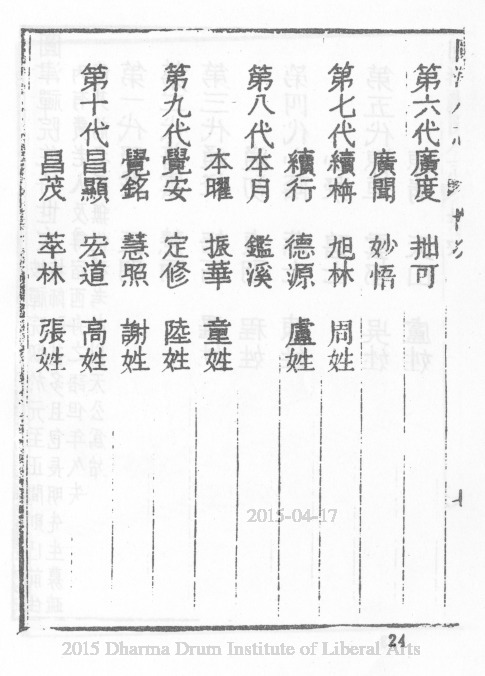 第六代廣度 拙可
廣聞 妙悟
第七代續栴 旭林 周姓
續行 德源 盧姓
第八代本月 鑑溪
本曜 振華 童姓
第九代覺安 定修 陸姓
覺銘 慧照 謝姓
第十代昌顯 宏道 高姓
昌茂 萃林 張姓
2015-04-17
24
2015 Dharma Drum Institute of Liberal Arts